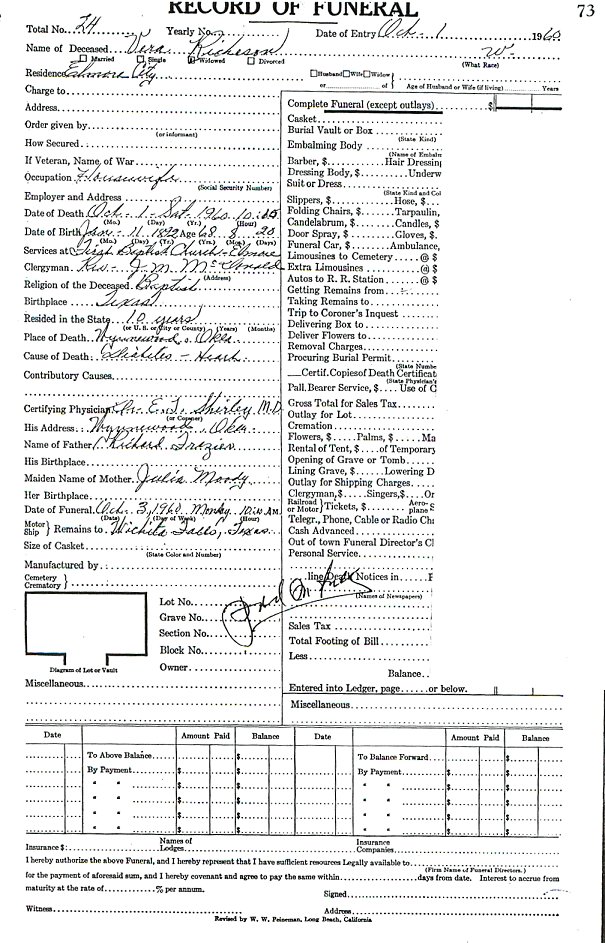 RECORD OF FUNERAL
73
Total No. 24 Yearly No. Date of Entry Oct - 1 1960
Name of Deceased Vera Richeson W-
(What Race)
Married Single Widowed Divorced
Residence Elmore City
Husband Wife Widow
or of Age of Husband or Wife (if living) Years
Charge to
Address
Order given by
(or informant)
How Secured
If Veteran, Name of War
Occupation Housewife
(Social Security Number)
Employer and Address
Date of Death Oct - 1 - Sat. 1960 10:05
(Mo.) (Day) (Yr.) (Hour)
Date of Birth Jan - 11 1892 Age 68 8 20
(Mo.) (Day) (Yr.) (Yrs.) (Mos.) (Days)
Services at First Baptist Church - Elmore
Clergyman Rev - J - M. McDonald
(Address)
Religion of the Deceased Baptist
Birthplace Texas
Resided in the State 10 years
(or U. S. or City or County) (Years) (Months)
Place of Death Wynnewood, Okla
Cause of Death Diabetes - Heart
Contributory Causes
Certifying Physician Dr. E. T. Shirley M.D.
(or Coroner)
His Address Wynnewood, Okla
Name of Father Richard Frazier
His Birthplace
Maiden Name of Mother Julia Moody
Her Birthplace
Date of Funeral Oct. 3, 1960 Monday 10:00 AM
(Date) (Day of Week) (Hour)
Motor
Ship } Remains to Wichita Falls, Texas
Size of Casket
(State Color and Number)
Manufactured by
Cemetery
Crematory }
Lot No.
Grave No.
Section No.
Block No.
Owner
Diagram of Lot or Vault
Miscellaneous
Complete Funeral (except outlays) $
Casket
Burial Vault or Box
(State Kind)
Embalming Body
(Name of Embalm
Barber, $ Hair Dressin
Dressing Body, $ Underw
Suit or Dress
(State Kind and Col
Slippers, $ Hose, $
Folding Chairs, $ Tarpaulin,
Candelabrum, $ Candles, $
Door Spray, $ Gloves, $
Funeral Car, $ Ambulance,
Limousines to Cemetery @ $
Extra Limousines @ $
Autos to R. R. Station @ $
Getting Remains from
Taking Remains to
Trip to Coroner's Inquest
Delivering Box to
Deliver Flowers to
Removal Charges
Procuring Burial Permit
(State Numbe
Certif. Copies of Death Certificat
(State Physician's
Pall Bearer Service, $ Use of C
Gross Total for Sales Tax
Outlay for Lot
Cremation
Flowers, $ Palms, $ Ma
Rental of Tent, $ of Temporary
Opening of Grave or Tomb
Lining Grave, $ Lowering D
Outlay for Shipping Charges
Clergyman, $ Singers, $ Or
Railroad
or Motor } Tickets, $ Aero-
plane $
Telegr., Phone, Cable or Radio Cha
Cash Advanced
Out of town Funeral Director's Cl
Personal Service
line Death Notices in
(Names of Newspapers)
Sales Tax
Total Footing of Bill
Less
Balance
Entered into Ledger, page or below.
Miscellaneous
Date Amount Paid Balance Date Amount Paid Balance
To Above Balance $ To Balance Forward $
By Payment $ $ By Payment $ $
" " $ $ " " $ $
" " $ $ " " $ $
" " $ $ " " $ $
" " $ $ " " $ $
Insurance $: Names of
Lodges Insurance
Companies
I hereby authorize the above Funeral, and I hereby represent that I have sufficient resources Legally available to
(Firm Name of Funeral Directors.)
for the payment of aforesaid sum, and I hereby covenant and agree to pay the same within days from date. Interest to accrue from
maturity at the rate of % per annum.
Signed
Witness Address
Revised by W. W. Feineman, Long Beach, California